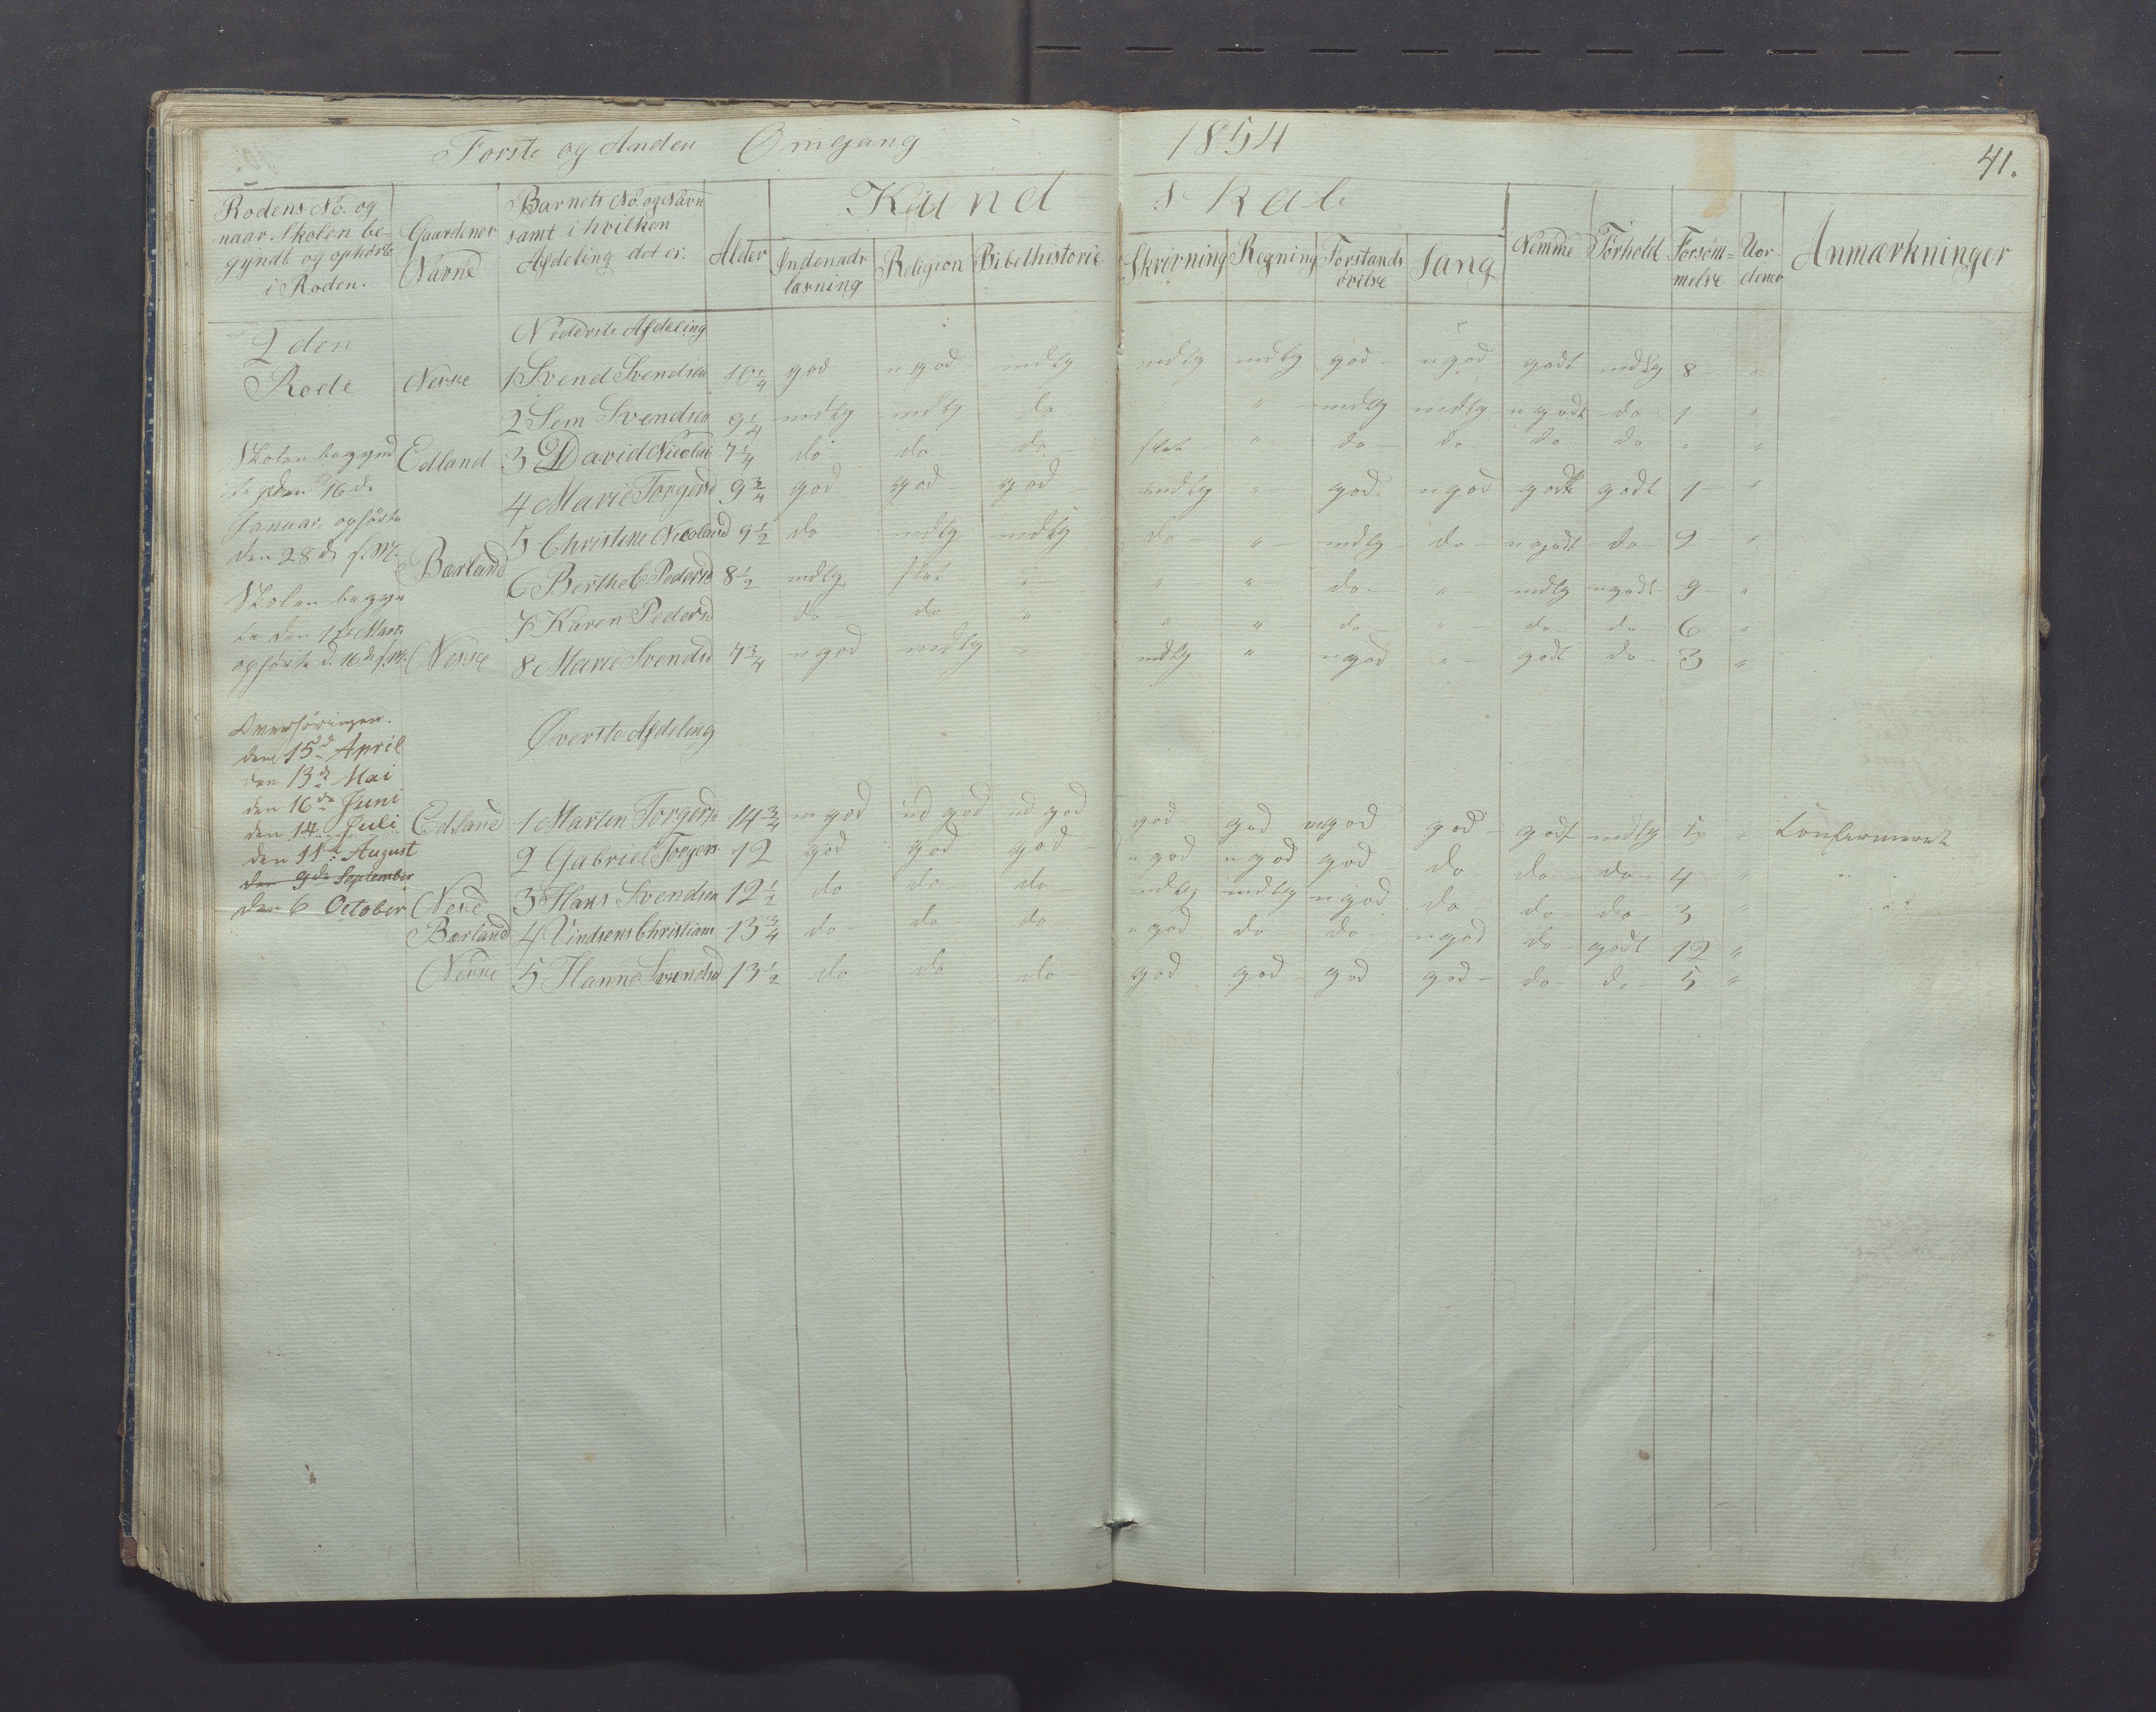 Forste og Anden Omgang 1854 41.
Rodens No. og naar Skolen begyndte og ophørte i Roden. Gaardenes Navne Barnets No. og Navn samt i hvilken Afdeling det er. Alder Kund skab Nemme Forhold Forsømmelse Uordener Anmærkninger
Indenadslæsning Religion Bibelhistorie Skrivning Regning Forstandsøvelse Sang
2den Nederste Afdeling
Rode Nesse 1 Svend Svendsen 10 1/4 god ngod mdlg mdlg mdlg god ngod godt mdlg 8 "
2 Sem Svendsen 9 1/4 mdlg mdlg do " " mdlg mdlg ngodt do 1 "
Edland 3 David Nicolai 7 1/4 do do do slet " do do do do " "
4 Marie Torgersd 9 3/4 god god god mdlg " god ngod godt godt 1 "
5 Christine Nicolaisd 9 1/2 do mdlg mdlg do " mdlg do ngodt do 2 "
Bærland 6 Berthe C Pedersd 8 1/2 mdlg slet " " " do " mdlg ngodt 9 "
7 Karen Pedersd do do " " " do " do do 6 "
Nesse 8 Marie Svendsd 7 3/4 ngod mdlg " mdlg " ngod " godt do 3 "
Skolen begynd
te den 16de
Januar, ophørte
den 28de s. M.
Skolen begyn
te den 1ste Marts
ophørte d. 16de s. M.
Overhøringer.
den 15de April
den 13de Mai
den 16de Juni
den 14 Juli
den 11te August
den 9de September
den 6 October
Øverste Afdeling
Edland 1 Martin Torgers 14 3/4 mgod ud god ud god god god mgod god godt mdlg 5 " Confirmeret
2 Gabriel Torgers 12 god god god ngod ngod god do do do 4 "
Nese 3 Hans Svendsen 12 1/2 do do do mdlg mdlg ngod do do do 3 "
Bærland 4 Vindsens Christians 13 3/4 do do do ngod do do ngod do godt 12 "
Nesse 5 Hanne Svendsd 13 1/2 do do do god god god god do do 5 "